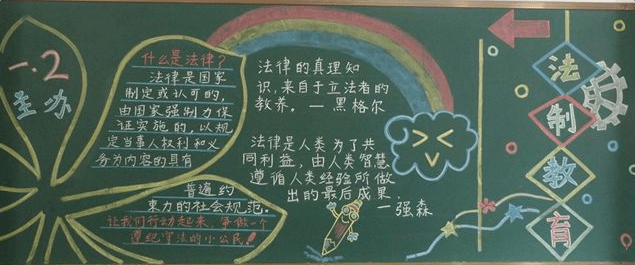 一.2
主办
什么是法律?
法律是国家
制定或认可的,
由国家强制力保
证实施的,以规
定当事人权利和义
务为内容的具有
普遍约
束力的社会规范。
让我们行动起来,争做一个
遵纪守法的小公民!
法律的真理知
识,来自于立法者的
教养。—黑格尔
法律是人类为了共
同利益,由人类智慧
遵循人类经验所做
出的最后成果,
—强森
法
制
教
育